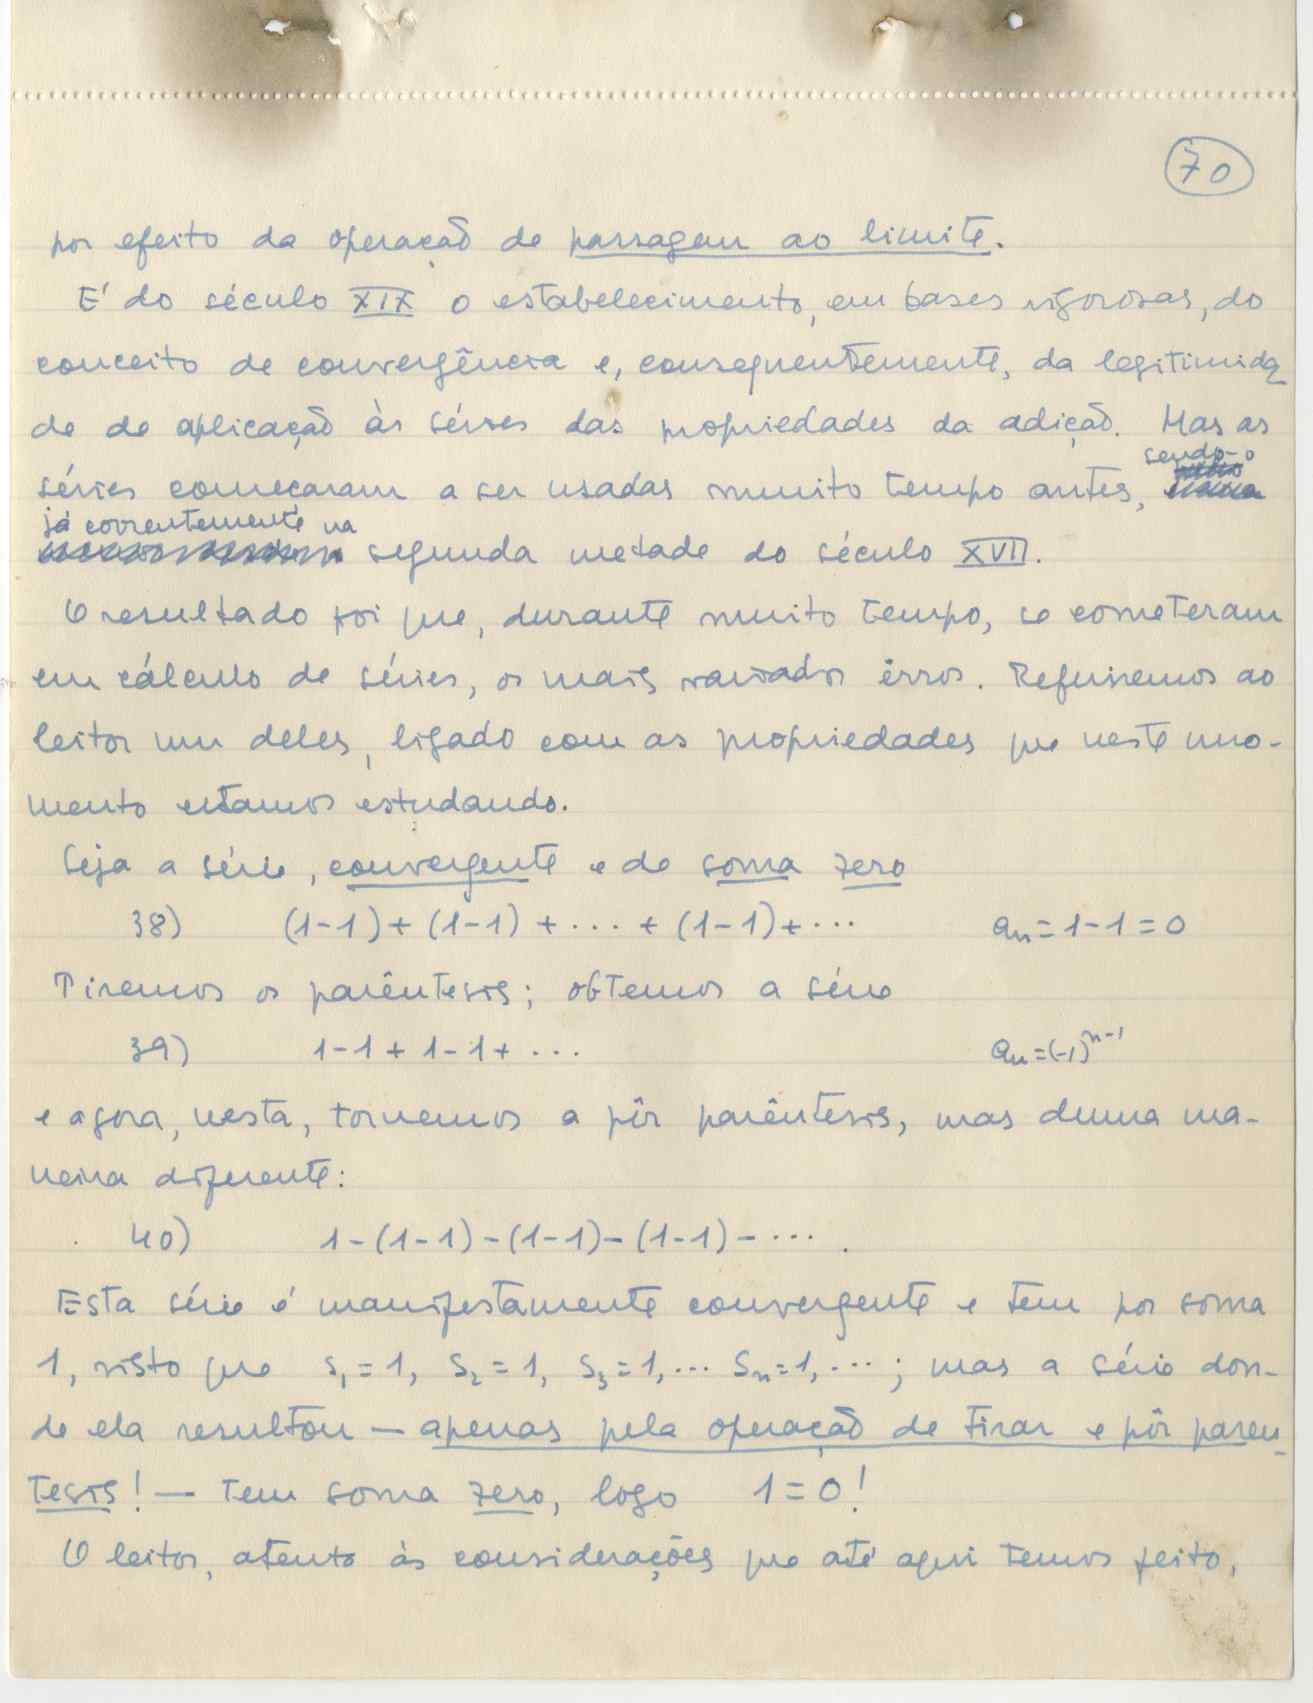 70
por efeito da operação de passagem ao limite.
É do século XIX o estabelecimento, em bases rigorosas, do
conceito de convergência e, consequentemente, da legitimida
de de aplicação às séries das propriedades da adição. Mas as
sendo-o
séries começaram a ser usadas muito tempo antes,
já correntemente na
segunda metade do século XVII.
O resultado foi que, durante muito tempo, se cometeram
em cálculo de séries, os mais variados êrros. Referiremos ao
leitor um deles, ligado com as propriedades que neste mo-
mento estamos estudando.
Seja a série, convergente e de soma zero
38) (1-1)+(1-1)+···+(1-1)+··· aₙ=1-1=0
Tiremos os parêntesis; obtemos a série
39) 1-1+1-1+··· aₙ=(-1)ⁿ⁻¹
e agora, nesta, tornemos a pôr parêntesis, mas duma ma-
neira diferente:
40) 1-(1-1)-(1-1)-(1-1)-··· .
Esta série é manifestamente convergente e tem por soma
1, visto que s₁=1, s₂=1, s₃=1,··· sₙ=1,···; mas a série don-
de ela resultou — apenas pela operação de tirar e pôr paren-
tesis! — tem soma zero, logo 1=0!
O leitor, atento às considerações que até aqui temos feito,